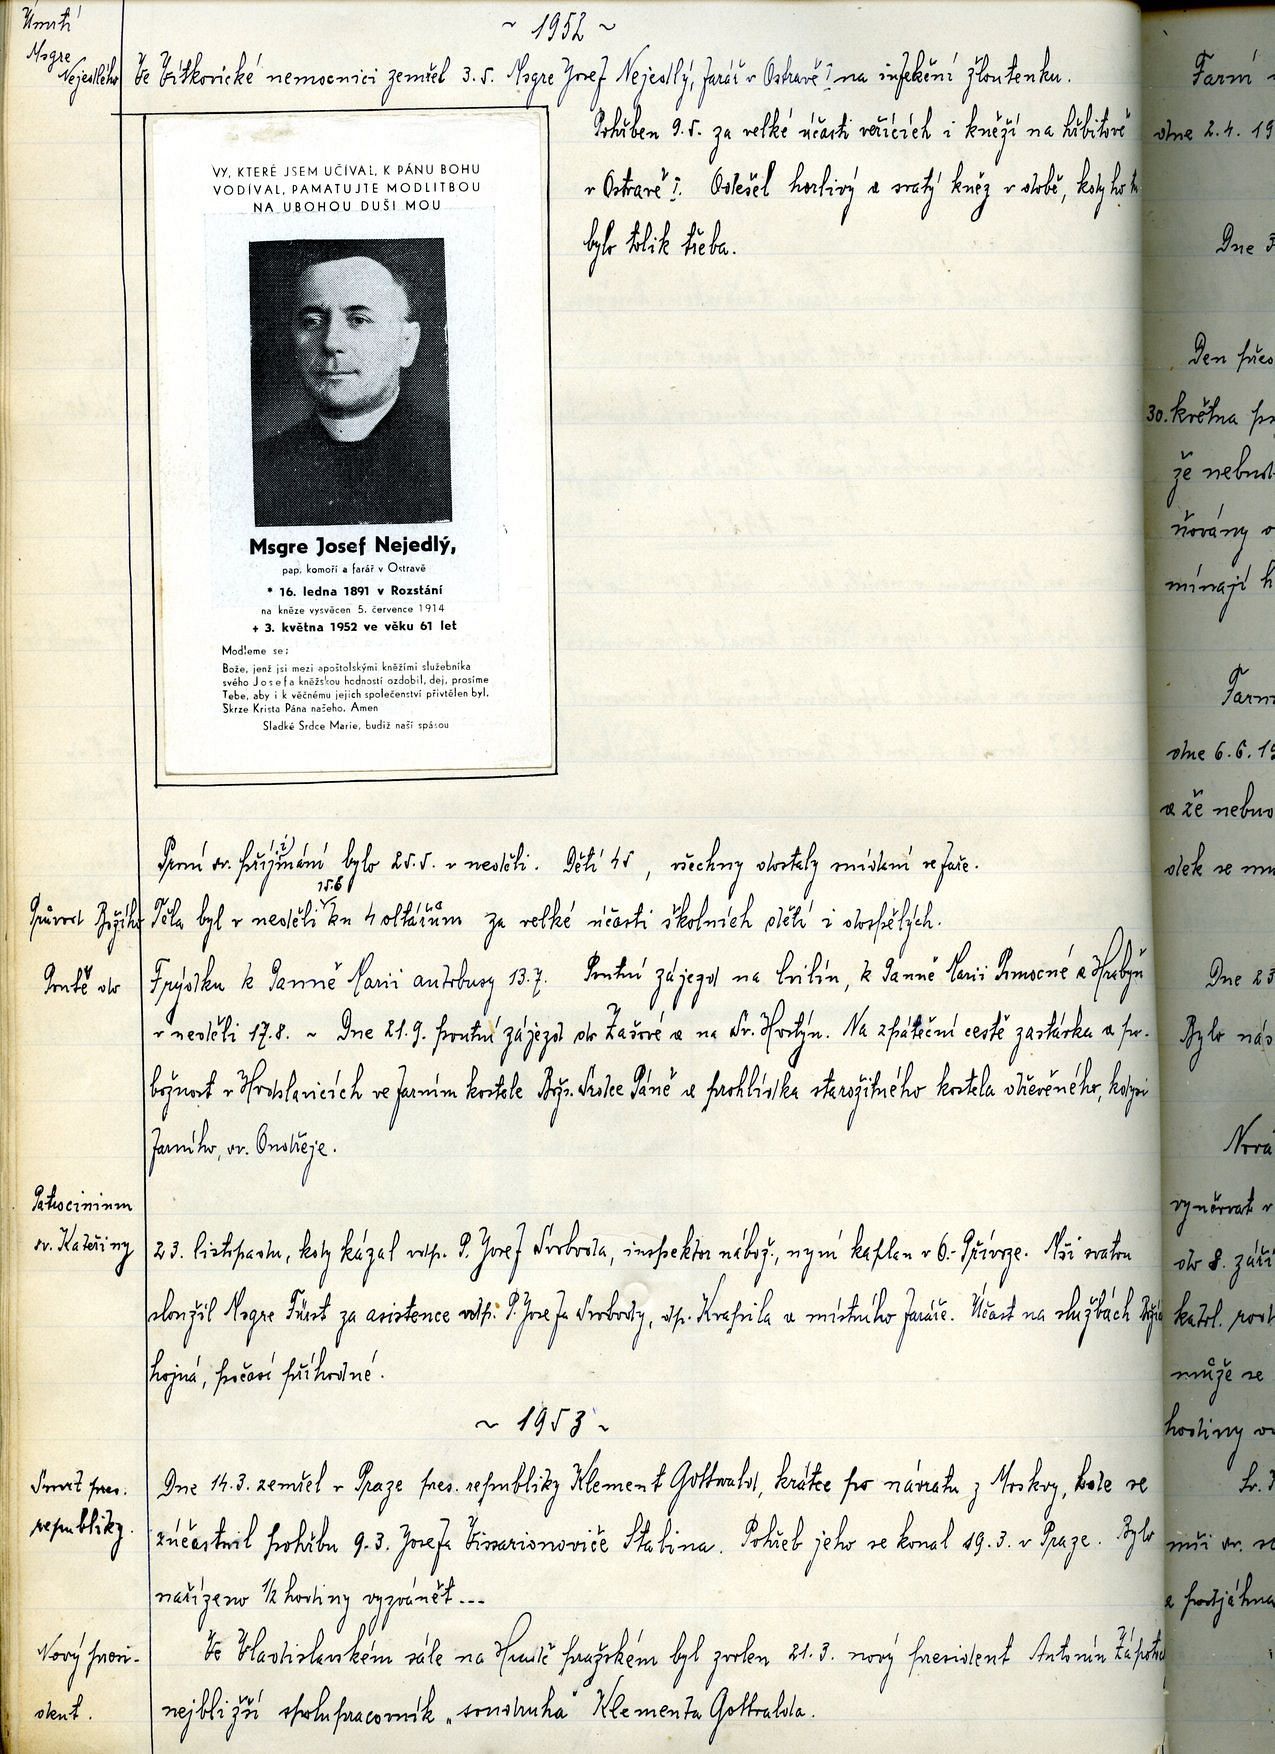 ~ 1952 ~
Úmrtí
Msgre
Nejedlého
Ve Vítkovické nemocnici zemřel 3.5. Msgre Josef Nejedlý, farář v Ostravě I na infekční žloutenku.
Pohřben 9.5. za velké účasti věřících i kněží na hřbitově
v Ostravě I. Odešel horlivý a svatý kněz v době, kdy ho tu
bylo tolik třeba.
VY, KTERÉ JSEM UČÍVAL, K PÁNU BOHU
VODÍVAL, PAMATUJTE MODLITBOU
NA UBOHOU DUŠI MOU
Msgre Josef Nejedlý,
pap. komoří a farář v Ostravě
* 16. ledna 1891 v Rozstání
na kněze vysvěcen 5. července 1914
+ 3. května 1952 ve věku 61 let
Modleme se:
Bože, jenž jsi mezi apoštolskými kněžími služebníka
svého Josefa kněžskou hodností ozdobil, dej, prosíme
Tebe, aby i k věčnému jejich společenství přivtělen byl.
Skrze Krista Pána našeho. Amen
Sladké Srdce Marie, budiž naší spásou
První sv. přijímání bylo 25.5. v neděli. Dětí 45, všechny dostaly snídaní ve faře.
15.6
Průvod Božího Těla byl v neděli ku 4 oltářům za velké účasti školních dětí i dospělých.
Poutě do Frýdku k Panně Marii autobusy 13.7. Poutní zájezd na Cvilín, k Panně Marii Pomocné a Hrabyň
v neděli 17.8. ~ Dne 21.9. poutní zájezd do Zašové a na Sv. Hostýn. Na zpáteční cestě zastávka a po-
božnost v Hodslavicích ve farním kostele Božs. Srdce Páně a prohlídka starožitného kostela dřevěného, kdysi
farního, sv. Ondřeje.
Patrocinium
sv. Kateřiny
23. listopadu, kdy kázal vdp. P. Josef Svoboda, inspektor nábož., nyní kaplan v O.-Přívoze. Mši svatou
sloužil Msgre Fürst za asistence vdp. P. Josefa Svobody, dp. Kvapila a místního faráře. Účast na službách Božích
hojná, počasí příhodné.
~ 1953 ~
Smrt pres.
republiky.
Dne 14.3. zemřel v Praze pres. republiky Klement Gottwald, krátce po návratu z Moskvy, kde se
zúčastnil pohřbu 9.3. Josefa Vissarionoviče Stalina. Pohřeb jeho se konal 19.3. v Praze. Bylo
nařízeno 1/2 hodiny vyzvánět...
Nový presi-
dent.
Ve Vladislavském sále na Hradě pražském byl zvolen 21.3. nový president Antonín Zápotoc
nejbližší spolupracovník „soudruha" Klementa Gottwalda.
Farní
dne 2.4. 19
Dne 3
Den
30. května
že nebud
ňovány
mínají
Farní
dne 6.6. 19
a že nebud
dek se
Dne 23
Bylo nás
Nová
vyučovat v
do 8. září
katol.
může se
hodiny
Sv.
mši sv.
a